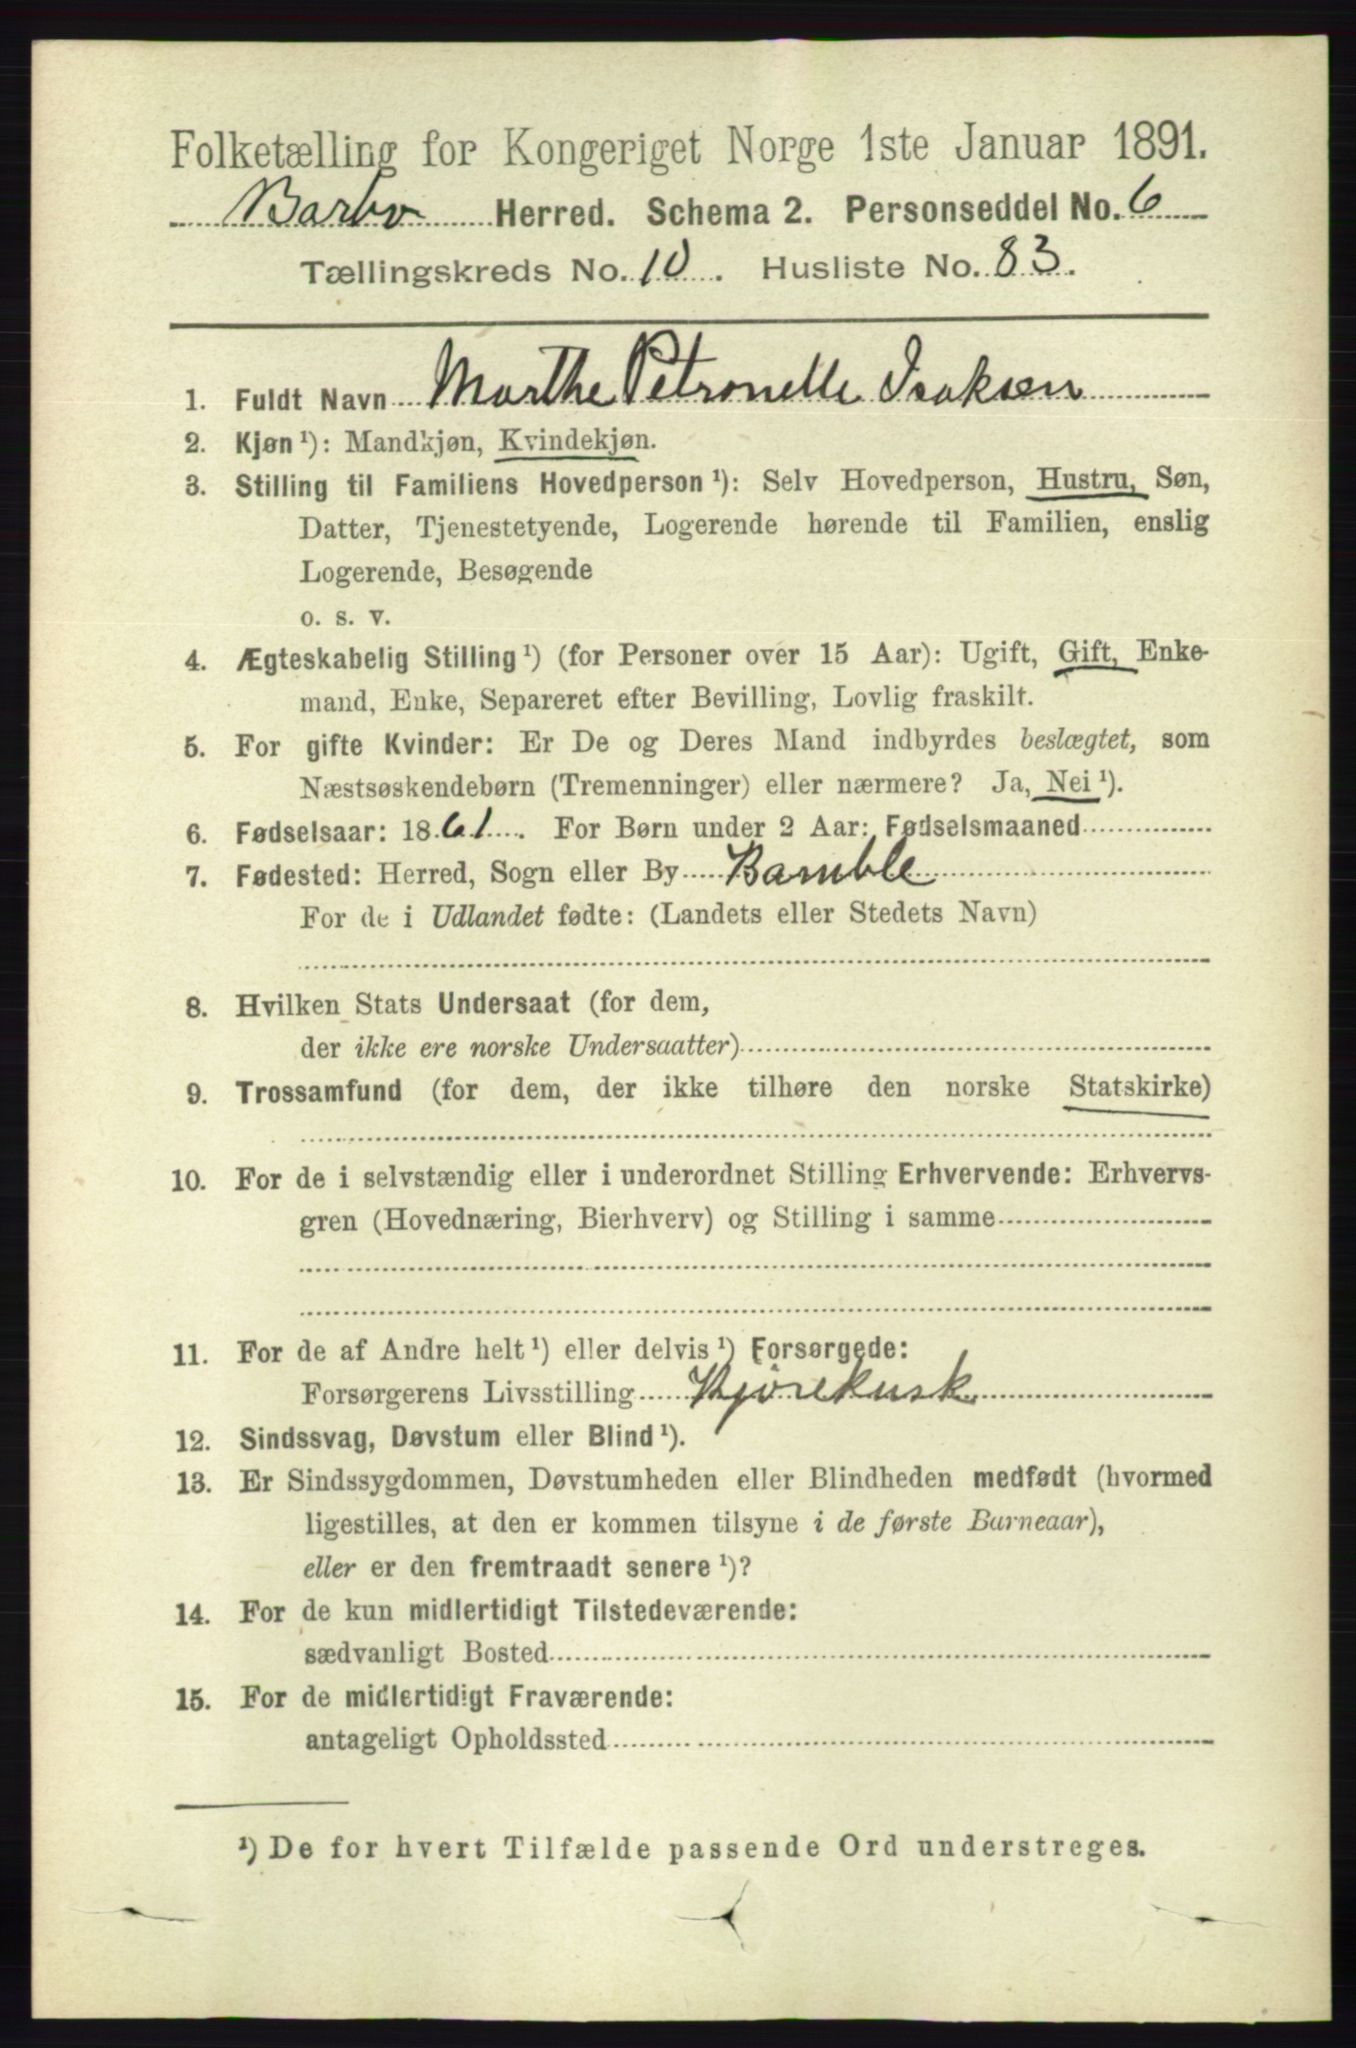 Folketælling for Kongeriget Norge 1ste Januar 1891.
Barbo Herred. Schema 2. Personseddel No. 6
Tællingskreds No. 10. Husliste No. 83.
1. Fuldt Navn Marthe Petronelle Isaksen
2. Kjøn ¹): Mandkjøn, Kvindekjøn.
3. Stilling til Familiens Hovedperson ¹): Selv Hovedperson, Hustru, Søn,
Datter, Tjenestetyende, Logerende hørende til Familien, enslig
Logerende, Besøgende
o. s. v.
4. Ægteskabelig Stilling ¹) (for Personer over 15 Aar): Ugift, Gift, Enke-
mand, Enke, Separeret efter Bevilling, Lovlig fraskilt.
5. For gifte Kvinder: Er De og Deres Mand indbyrdes beslægtet, som
Næstsøskendebørn (Tremenninger) eller nærmere? Ja, Nei ¹).
6. Fødselsaar: 1861. For Børn under 2 Aar: Fødselsmaaned
7. Fødested: Herred, Sogn eller By Bamble
For de i Udlandet fødte: (Landets eller Stedets Navn)
8. Hvilken Stats Undersaat (for dem,
der ikke ere norske Undersaatter)
9. Trossamfund (for dem, der ikke tilhøre den norske Statskirke)
10. For de i selvstændig eller i underordnet Stilling Erhvervende: Erhvervs-
gren (Hovednæring, Bierhverv) og Stilling i samme
11. For de af Andre helt ¹) eller delvis ¹) Forsørgede:
Forsørgerens Livsstilling Kjørekusk
12. Sindssvag, Døvstum eller Blind ¹).
13. Er Sindssygdommen, Døvstumheden eller Blindheden medfødt (hvormed
ligestilles, at den er kommen tilsyne i de første Barneaar),
eller er den fremtraadt senere ¹)?
14. For de kun midlertidigt Tilstedeværende:
sædvanligt Bosted
15. For de midlertidigt Fraværende:
antageligt Opholdssted
¹) De for hvert Tilfælde passende Ord understreges.